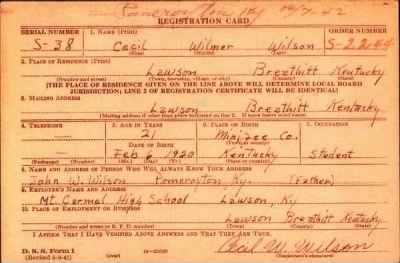 Pomeroyton Ky 10/7-42
REGISTRATION CARD
SERIAL NUMBER 1. NAME (Print) ORDER NUMBER
S-38 Cecil Wilmer Wilson S-2244
(First) (Middle) (Last)
2. PLACE OF RESIDENCE (Print)
Lawson Breathitt Kentucky
(Number and street) (Town, township, village, or city) (County) (State)
[THE PLACE OF RESIDENCE GIVEN ON THE LINE ABOVE WILL DETERMINE LOCAL BOARD
JURISDICTION; LINE 2 OF REGISTRATION CERTIFICATE WILL BE IDENTICAL]
3. MAILING ADDRESS
Lawson Breathitt Kentucky
[Mailing address if other than place indicated on line 2. If same insert word same]
4. TELEPHONE 5. AGE IN YEARS 6. PLACE OF BIRTH 7. OCCUPATION
21 Co.
DATE OF BIRTH
— Feb 6 1920 Kentucky Student
(Exchange) (Number) (Mo.) (Day) (Yr.) (State or country)
8. NAME AND ADDRESS OF PERSON WHO WILL ALWAYS KNOW YOUR ADDRESS
John W. Wilson Pomeroyton, Ky. (Father)
9. EMPLOYER'S NAME AND ADDRESS
Mt. Carmel High School Lawson, Ky
10. PLACE OF EMPLOYMENT OR BUSINESS
Lawson Breathitt Kentucky
(Number and street or R. F. D. number) (Town) (County) (State)
I AFFIRM THAT I HAVE VERIFIED ABOVE ANSWERS AND THAT THEY ARE TRUE.
D. S. S. Form 1
(Revised 6-9-41) (over) Cecil W. Wilson